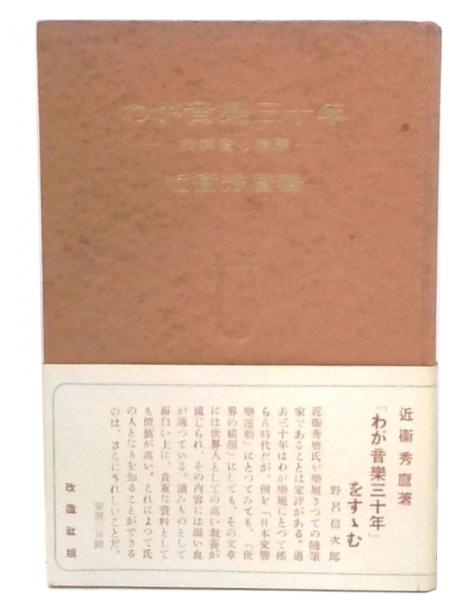 わが音樂三十年
指揮者の横顏
近衞秀麿著
近衞秀麿著
「わが音樂三十年」
をすゝむ
野呂信次郎
近衞秀麿氏が樂壇きつての隨筆
家であることは定評がある。過
去三十年はわが樂壇にとつて搖
らん時代だが、例を「日本交響
樂運動」にとつてみても、「世
界の橫顏」にしても、その文章
には世界人としての高い敎養が
感じられ、その內容には溫い血
が通つている。讀みものとして
面白い上に、貴重な資料として
も價値が高い。これによつて氏
の人となりを知ることができる
のは、さらにうれしいことだ。
定價三百圓
改造社版